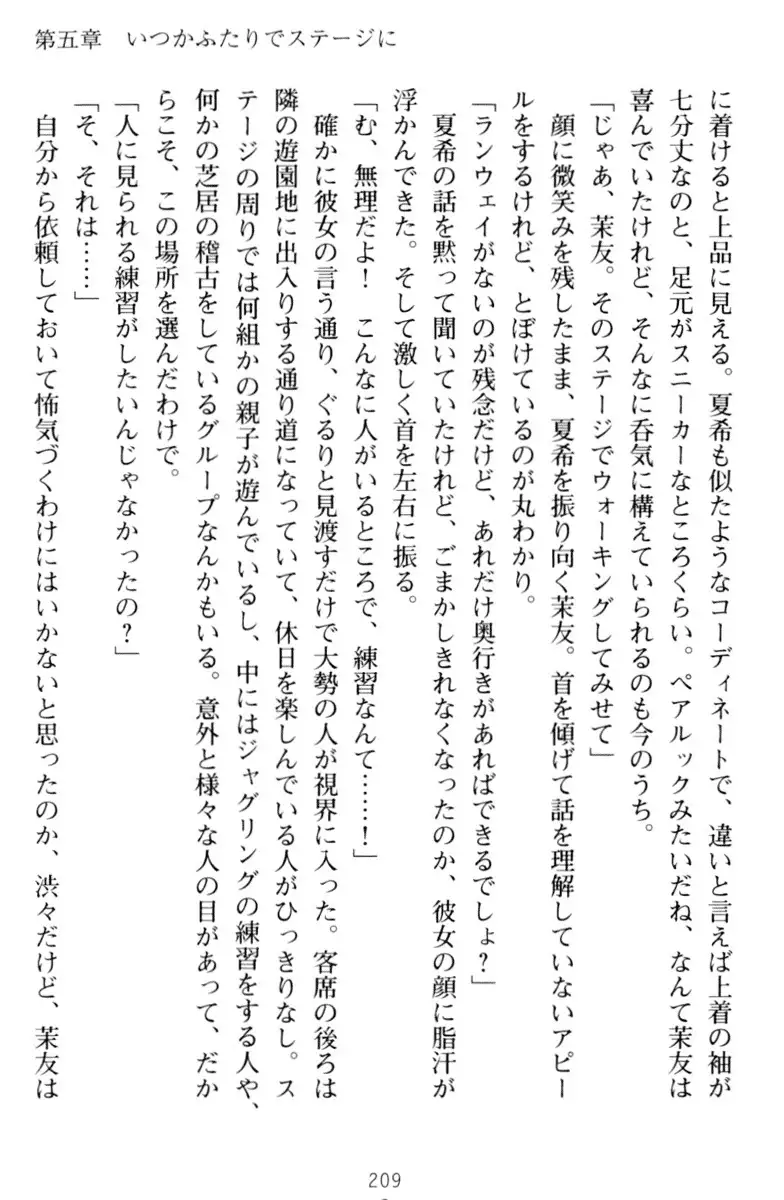 第五章　いつかふたりでステージに
に着けると上品に見える。夏希も似たようなコーディネートで、違いと言えば上着の袖が
七分丈なのと、足元がスニーカーなところくらい。ペアルックみたいだね、なんて茉友は
喜んでいたけれど、そんなに呑気に構えていられるのも今のうち。
「じゃあ、茉友。そのステージでウォーキングしてみせて」
　顔に微笑みを残したまま、夏希を振り向く茉友。首を傾げて話を理解していないアピー
ルをするけれど、とぼけているのが丸わかり。
「ランウェイがないのが残念だけど、あれだけ奥行きがあればできるでしょ？」
　夏希の話を黙って聞いていたけれど、ごまかしきれなくなったのか、彼女の顔に脂汗が
浮かんできた。そして激しく首を左右に振る。
「む、無理だよ！　こんなに人がいるところで、練習なんて……！」
　確かに彼女の言う通り、ぐるりと見渡すだけで大勢の人が視界に入った。客席の後ろは
隣の遊園地に出入りする通り道になっていて、休日を楽しんでいる人がひっきりなし。ス
テージの周りでは何組かの親子が遊んでいるし、中にはジャグリングの練習をする人や、
何かの芝居の稽古をしているグループなんかもいる。意外と様々な人の目があって、だか
らこそ、この場所を選んだわけで。
「人に見られる練習がしたいんじゃなかったの？」
「そ、それは……」
　自分から依頼しておいて怖気づくわけにはいかないと思ったのか、渋々だけど、茉友は
209